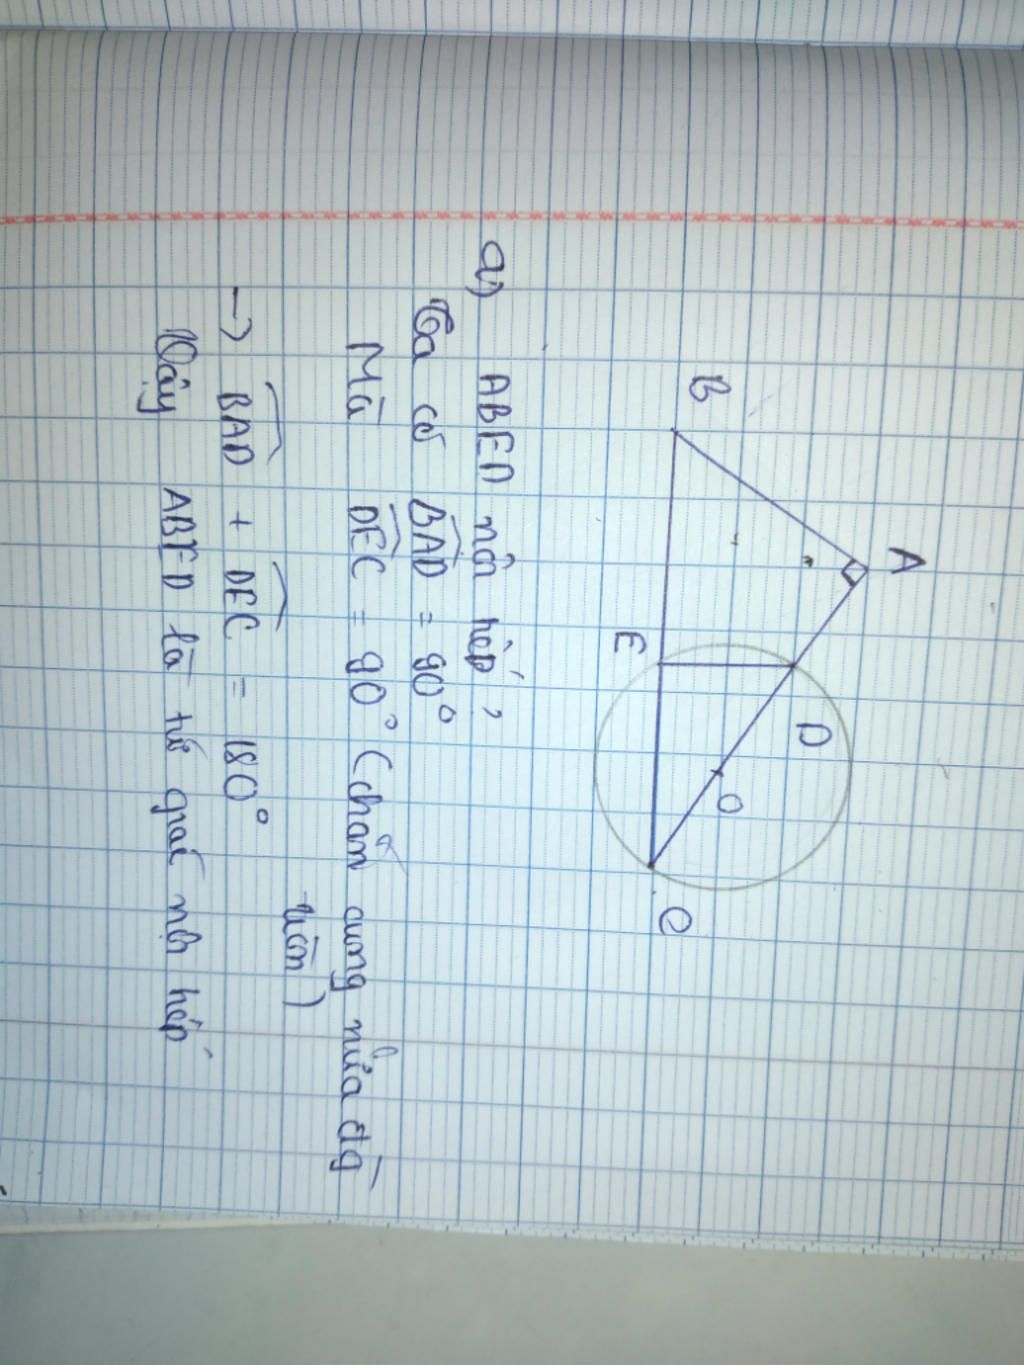 A
B
D
E
O
C
a) ABED nội tiếp,
Ta có BAD = 90°
Mà DEC = 90° (chắn cung nửa đg
tròn)
→ BAD + DEC = 180°
Vậy ABED là tứ giác nội tiếp